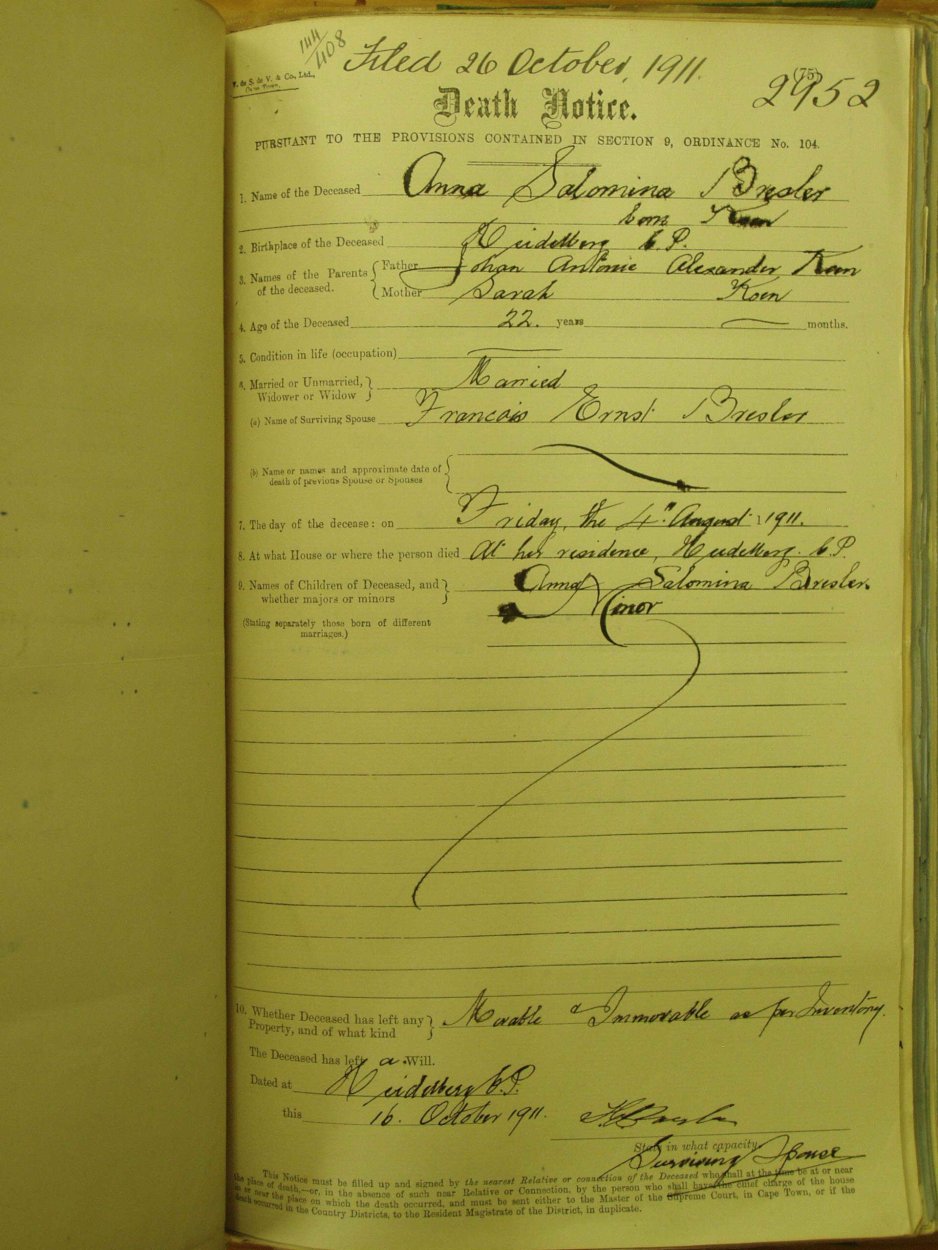 144/408
Filed 26 October, 1911.
T. de S. de V. & Co., Ltd.,
Cape Town.
(75)
2952
Death Notice.
PURSUANT TO THE PROVISIONS CONTAINED IN SECTION 9, ORDINANCE No. 104.
1. Name of the Deceased Anna Salomina Bresler
born Koen
2. Birthplace of the Deceased Heidelberg C.P.
3. Names of the Parents of the deceased. { Father Johan Antonie Alexander Koen
Mother Sarah Koen
4. Age of the Deceased 22. years — months.
5. Condition in life (occupation) —
6. Married or Unmarried, Widower or Widow } Married
(a) Name of Surviving Spouse Francois Ernst Bresler
(b) Name or names and approximate date of
death of previous Spouse or Spouses
7. The day of the decease: on Friday, the 4th August 1911.
8. At what House or where the person died At her residence, Heidelberg. C.P.
9. Names of Children of Deceased, and Anna Salomina Bresler.
whether majors or minors } Minor
(Stating separately those born of different
marriages.)
10. Whether Deceased has left any
Property, and of what kind } Movable & Immovable as per Inventory.
The Deceased has left a Will.
Dated at Heidelberg C.P.
this 16. October 1911. Bresler
State in what capacity
Surviving Spouse
This Notice must be filled up and signed by the nearest Relative or connection of the Deceased who shall at the time be at or near
the place of death,—or, in the absence of such near Relative or Connection, by the person who shall have the chief charge of the house
in or near the place on which the death occurred, and must be sent either to the Master of the Supreme Court, in Cape Town, or if the
death occurred in the Country Districts, to the Resident Magistrate of the District, in duplicate.